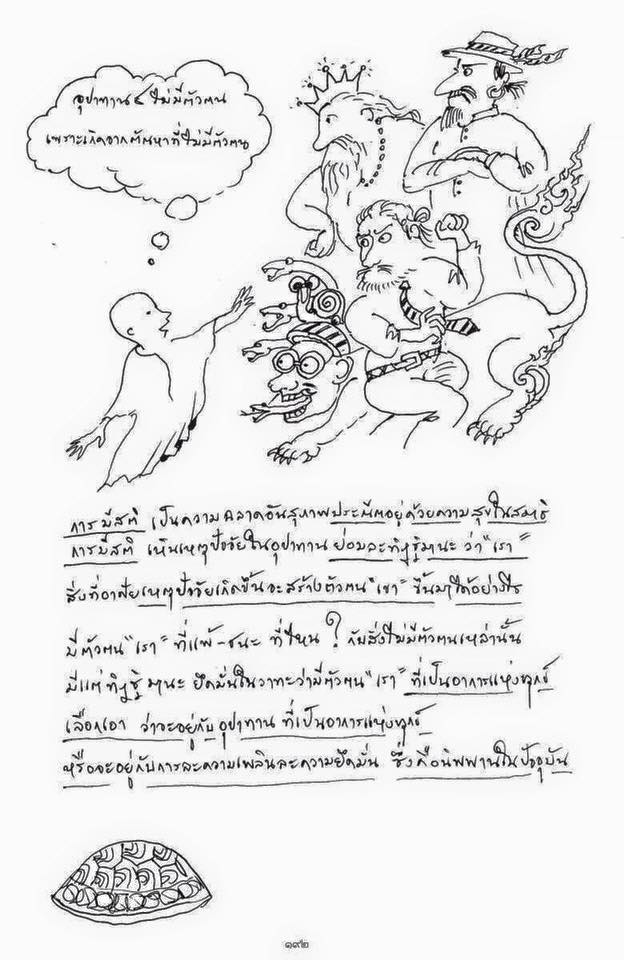 อุปาทาน ๔ ไม่มีตัวตน
เพราะเกิดจากตัณหาที่ไม่มีตัวตน
การมีสติ เป็นความฉลาดอันสุภาพประณีตอยู่ด้วยความสุขในสมาธิ
การมีสติ เห็นเหตุปัจจัยในอุปาทาน ย่อมละทิฏฐิมานะ ว่า "เรา"
สิ่งที่อาศัยเหตุปัจจัยเกิดขึ้นจะสร้างตัวตน "เขา" ขึ้นมาได้อย่างไร
มีตัวตน "เรา" ที่แพ้-ชนะ ที่ไหน ? กับสิ่งไม่มีตัวตนเหล่านั้น
มีแต่ ทิฏฐิ มานะ ยึดมั่นในวาทะว่ามีตัวตน "เรา" ที่เป็นอาการแห่งทุกข์
เลือกเอา ว่าจะอยู่กับ อุปาทาน ที่เป็นอาการแห่งทุกข์
หรือจะอยู่กับการละความเพลินละความยึดมั่น ซึ่งคือนิพพานในปัจจุบัน
๑๙๒